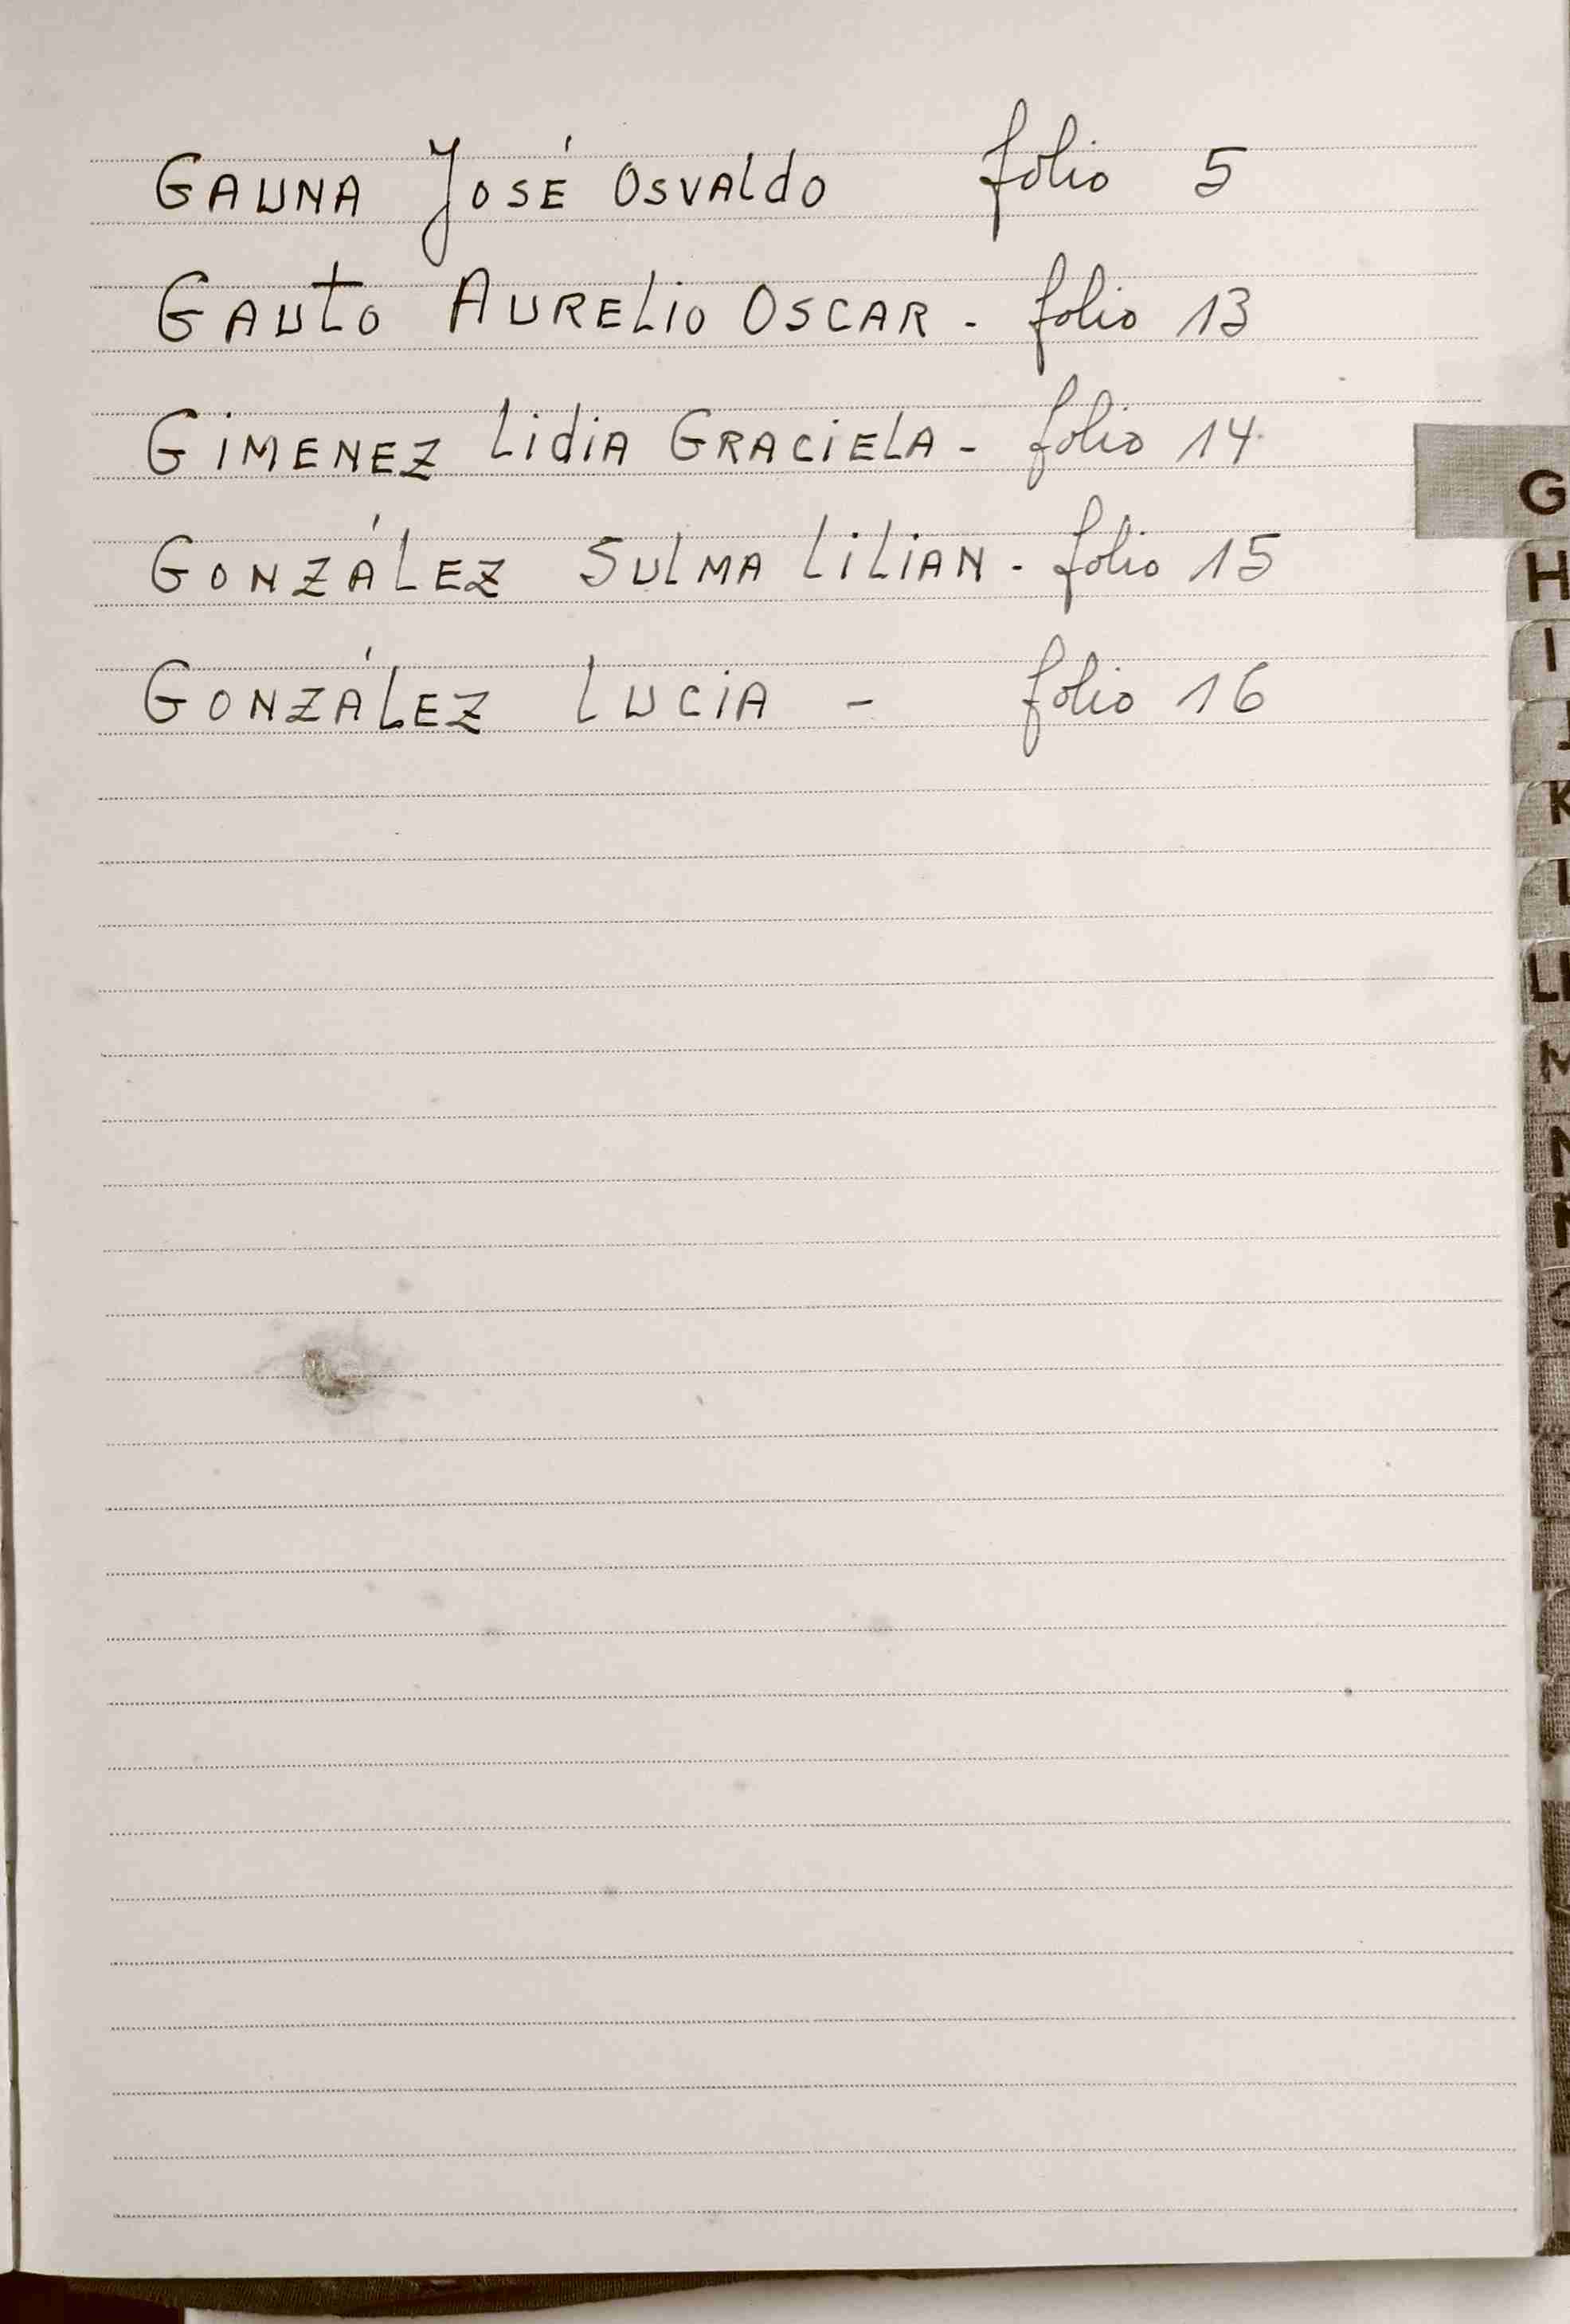 GAUNA José Osvaldo folio 5
GAUTO AURELIO OSCAR - folio 13
GIMENEZ LidiA GRACIELA - folio 14
GONZÁLEZ SULMA LILIAN - folio 15
GONZÁLEZ LUCIA - folio 16
G
H
I
J
K
L
LL
M
N